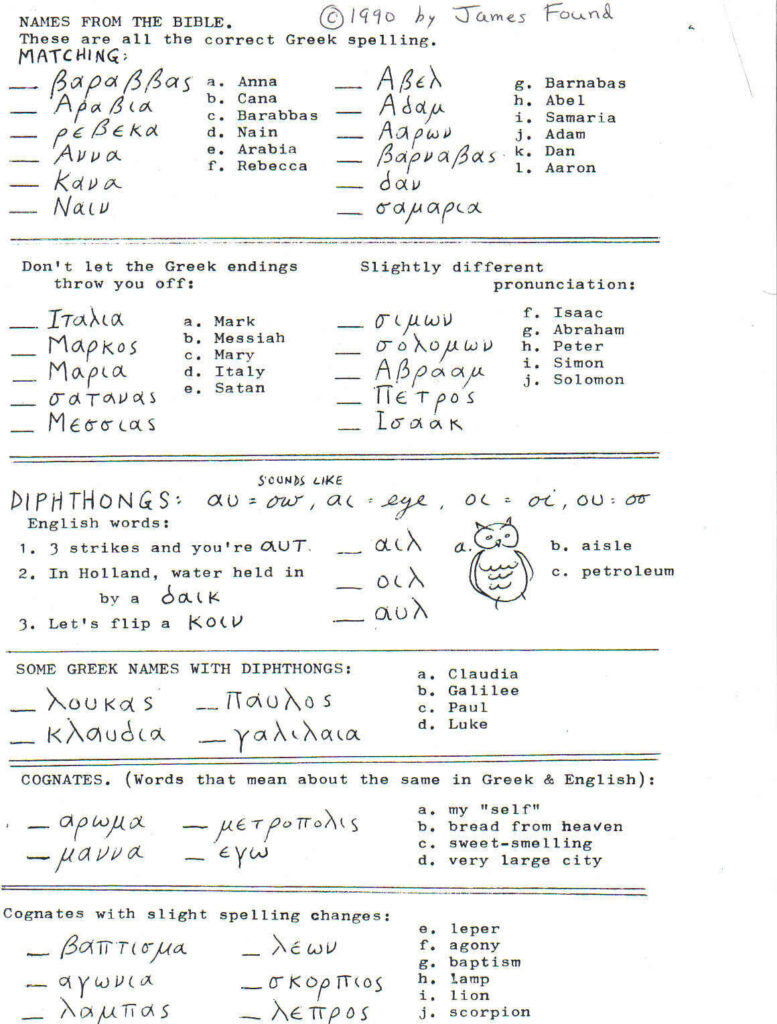 NAMES FROM THE BIBLE. ©1990 by James Found
These are all the correct Greek spelling.
MATCHING:
__ βαραββας
__ Αραβια
__ ρεβεκα
__ Αννα
__ Κανα
__ Ναιν
a. Anna
b. Cana
c. Barabbas
d. Nain
e. Arabia
f. Rebecca
__ Αβελ
__ Αδαμ
__ Ααρων
__ βαρναβας
__ δαν
__ σαμαρια
g. Barnabas
h. Abel
i. Samaria
j. Adam
k. Dan
l. Aaron
Don't let the Greek endings
throw you off:
__ Ιταλια
__ Μαρκος
__ Μαρια
__ σατανας
__ Μεσσιας
a. Mark
b. Messiah
c. Mary
d. Italy
e. Satan
Slightly different
pronunciation:
__ σιμων
__ σολομων
__ Αβρααμ
__ Πετρος
__ Ισαακ
f. Isaac
g. Abraham
h. Peter
i. Simon
j. Solomon
SOUNDS LIKE
DIPHTHONGS: αυ = ow, αι = eye, οι = oi, ου = oo
English words:
1. 3 strikes and you're αυτ.
2. In Holland, water held in
by a δαικ
3. Let's flip a κοιν
__ αιλ
__ οιλ
__ αυλ
a.
b. aisle
c. petroleum
SOME GREEK NAMES WITH DIPHTHONGS:
__ λουκας __ Παυλος
__ κλαυδια __ γαλιλαια
a. Claudia
b. Galilee
c. Paul
d. Luke
COGNATES. (Words that mean about the same in Greek & English):
__ αρωμα __ μετροπολις
__ μαννα __ εγω
a. my "self"
b. bread from heaven
c. sweet-smelling
d. very large city
Cognates with slight spelling changes:
__ βαπτισμα __ λεων
__ αγωνια __ σκορπιος
__ λαμπας __ λεπρος
e. leper
f. agony
g. baptism
h. lamp
i. lion
j. scorpion